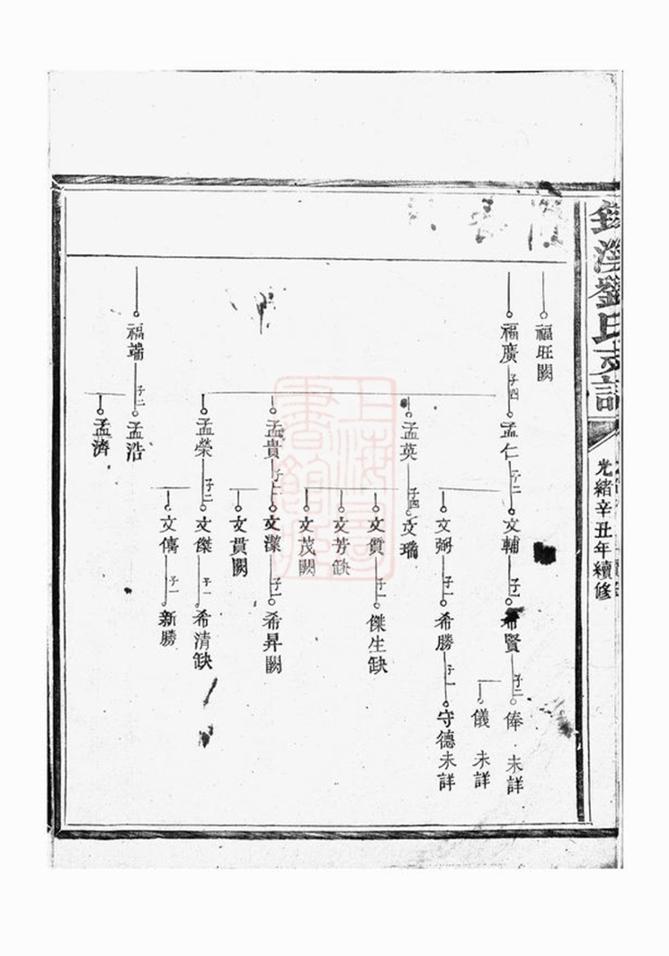 劉氏支譜
光緒辛丑年續修
福旺闕
福廣 子四
孟仁 子二
文輔 子一
希賢 子二
俸 未詳
儀 未詳
文弼 子一
希勝 子一
守德未詳
孟英 子四
文瑞
文質 子一
傑生缺
文芳缺
文茂闕
孟貴 子二
文潔 子一
希昇闕
文貫闕
孟榮 子二
文傑 子一
希清缺
文儁 子一
新勝
福端 子二
孟浩
孟濟
上海圖書館藏